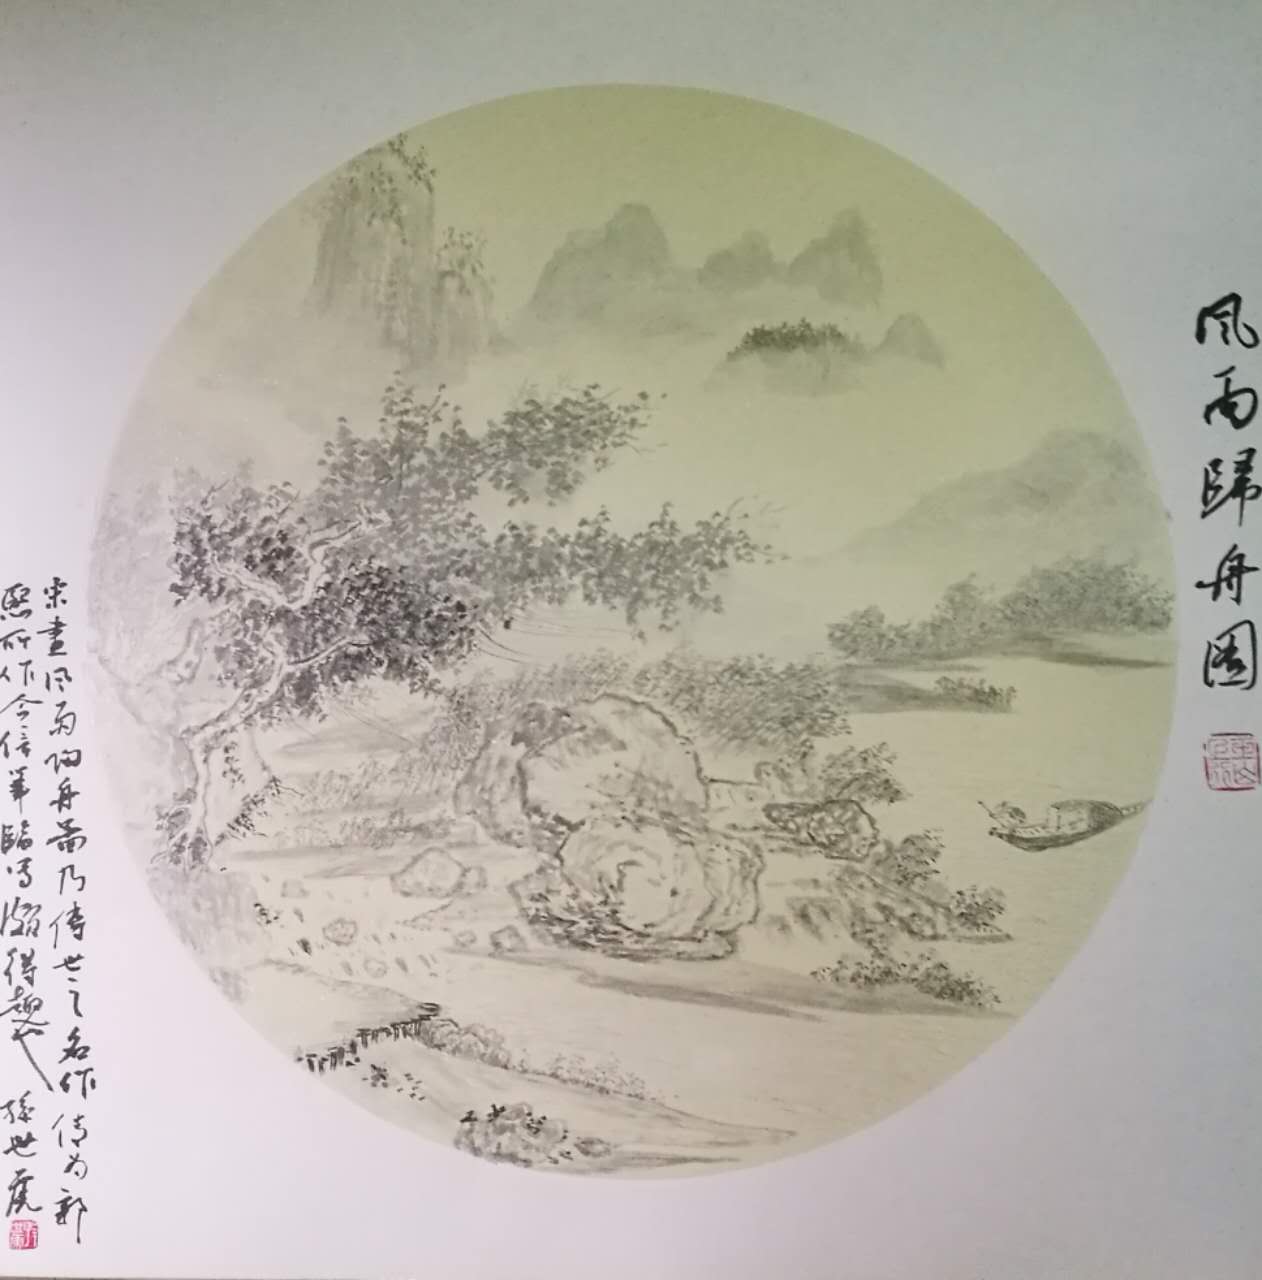 風雨歸舟圖
宋畫风雨归舟圖乃傳世之名作傳为郭
熙所作今信筆臨写頗得趣也 孫世虎